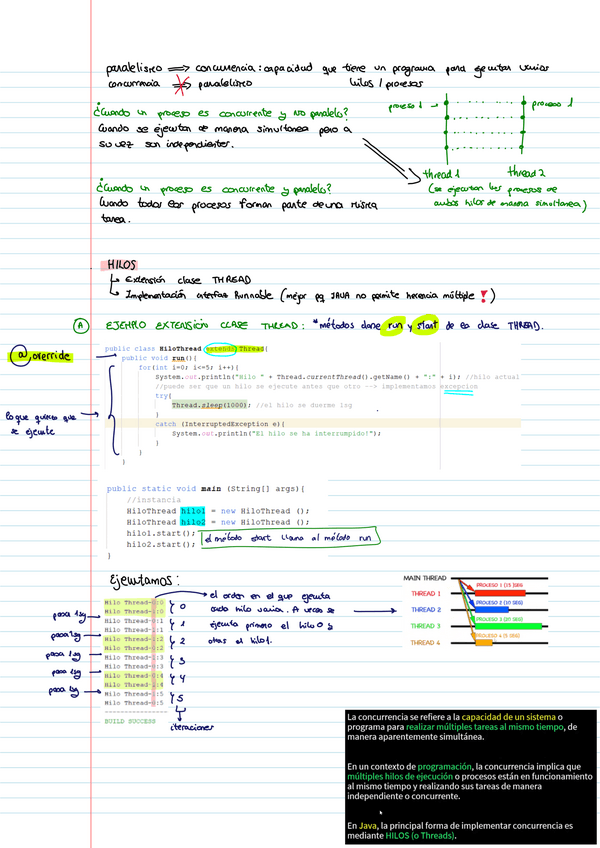 paralelismo ⟹ concurrencia : capacidad que tiene un programa para ejecutar varios
concurrencia ⟹ paralelismo hilos / procesos
¿Cuándo un proceso es concurrente y no paralelo?
Cuando se ejecutan de manera simultánea pero a
su vez son independientes.
proceso 1 proceso 1
thread 1 thread 2
(se ejecutan los procesos de
ambos hilos de manera simultánea)
¿Cuándo un proceso es concurrente y paralelo?
Cuando todos los procesos forman parte de una misma
tarea.
HILOS
Extensión clase THREAD
Implementación interfas Runnable (mejor pq JAVA no permite herencia múltiple !)
A EJEMPLO EXTENSIÓN CLASE THREAD: *métodos clave run y start de la clase THREAD.
@override
public class HiloThread extends Thread{
public void run(){
for(int i=0; i<=5; i++){
System.out.println("Hilo " + Thread.currentThread().getName() + ":" + i); //hilo actual
//puede ser que un hilo se ejecute antes que otro --> implementamos excepcion
try{
Thread.sleep(1000); //el hilo se duerme 1sg
}
catch (InterruptedException e){
System.out.println("El hilo se ha interrumpido!");
}
}
}
lo que quiero que
se ejecute
public static void main (String[] args){
//instancia
HiloThread hilo1 = new HiloThread ();
HiloThread hilo2 = new HiloThread ();
hilo1.start();
hilo2.start();
}
el método start llama al método run
Ejecutamos:
Hilo Thread-1:0
Hilo Thread-0:0
Hilo Thread-0:1
Hilo Thread-1:1
Hilo Thread-1:2
Hilo Thread-0:2
Hilo Thread-1:3
Hilo Thread-0:3
Hilo Thread-0:4
Hilo Thread-1:4
Hilo Thread-1:5
Hilo Thread-0:5
BUILD SUCCESS
pasa 1sg
pasa 1sg
pasa 1sg
pasa 1sg
pasa 1sg
0
1
2
3
4
5
iteraciones
el orden en el que ejecuta
cada hilo varía. A veces se
ejecuta primero el hilo 0 y
otras el hilo 1.
MAIN THREAD
THREAD 1 PROCESO 1 (15 SEG)
THREAD 2 PROCESO 2 (10 SEG)
THREAD 3 PROCESO 3 (20 SEG)
THREAD 4 PROCESO 4 (5 SEG)
La concurrencia se refiere a la capacidad de un sistema o
programa para realizar múltiples tareas al mismo tiempo, de
manera aparentemente simultánea.
En un contexto de programación, la concurrencia implica que
múltiples hilos de ejecución o procesos están en funcionamiento
al mismo tiempo y realizando sus tareas de manera
independiente o concurrente.
En Java, la principal forma de implementar concurrencia es
mediante HILOS (o Threads).